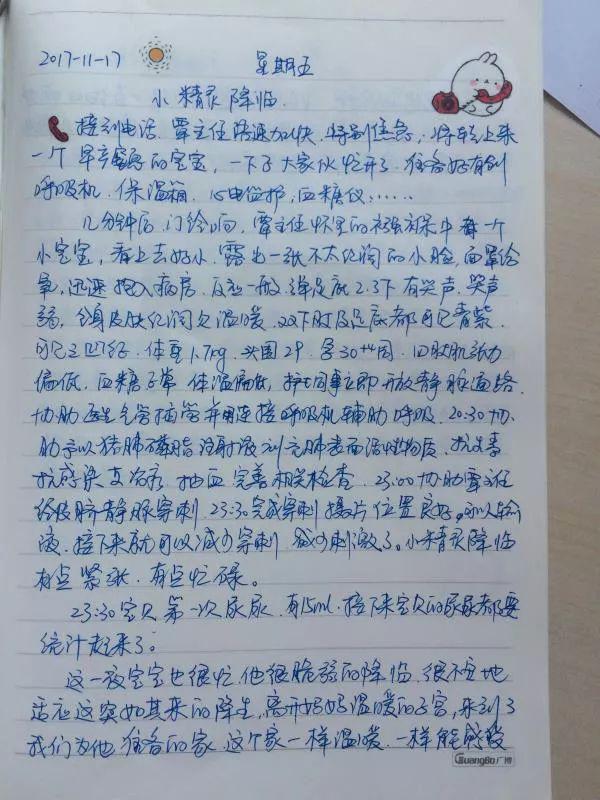 2017-11-17 星期五
小精灵降临.
接到电话. 覃主任语速加快. 特别焦急, 将转上来
一个早产的宝宝, 一下子大家伙忙开了. 准备好有创
呼吸机. 保温箱. 心电监护, 血糖仪……
几分钟后, 门铃响, 覃主任怀里的襁褓中有一个
小宝宝, 看上去好小. 露出一张不太红润的小脸, 面罩给
氧, 迅速抱入病房. 反应一般, 弹足底2.3下有哭声. 哭声
弱, 全身皮肤红润欠温暖. 双下肢及足底都可见青紫.
体重1.7kg. 头围29. 四肢肌张力
偏低, 血糖正常 体温偏低, 护士同事立即开放静脉通路.
协助医生气管插管并用连接呼吸机辅助呼吸. 20:30协
助予以猪肺磷脂注射液补充肺表面活性物质. 抗
抗感染支治疗 抽血 完善相关检查. 23:00 协助覃主任
给段脐静脉穿刺. 23:30完成穿刺 摄片位置良好. 可以输
液. 接下来就可以减少穿刺 减少刺激了。小精灵降临
有点紧张. 有点忙碌。
23:30宝贝第一次尿尿. 有15ml. 接下来宝贝的尿尿都要
统计起来了。
这一夜宝宝也很忙. 他很脆弱的降临. 很不适地
适应这突如其来的降生, 离开妈妈温暖的子宫, 来到了
我们为他准备的家. 这个家一样温暖. 一样能感受
GuangBo 广博